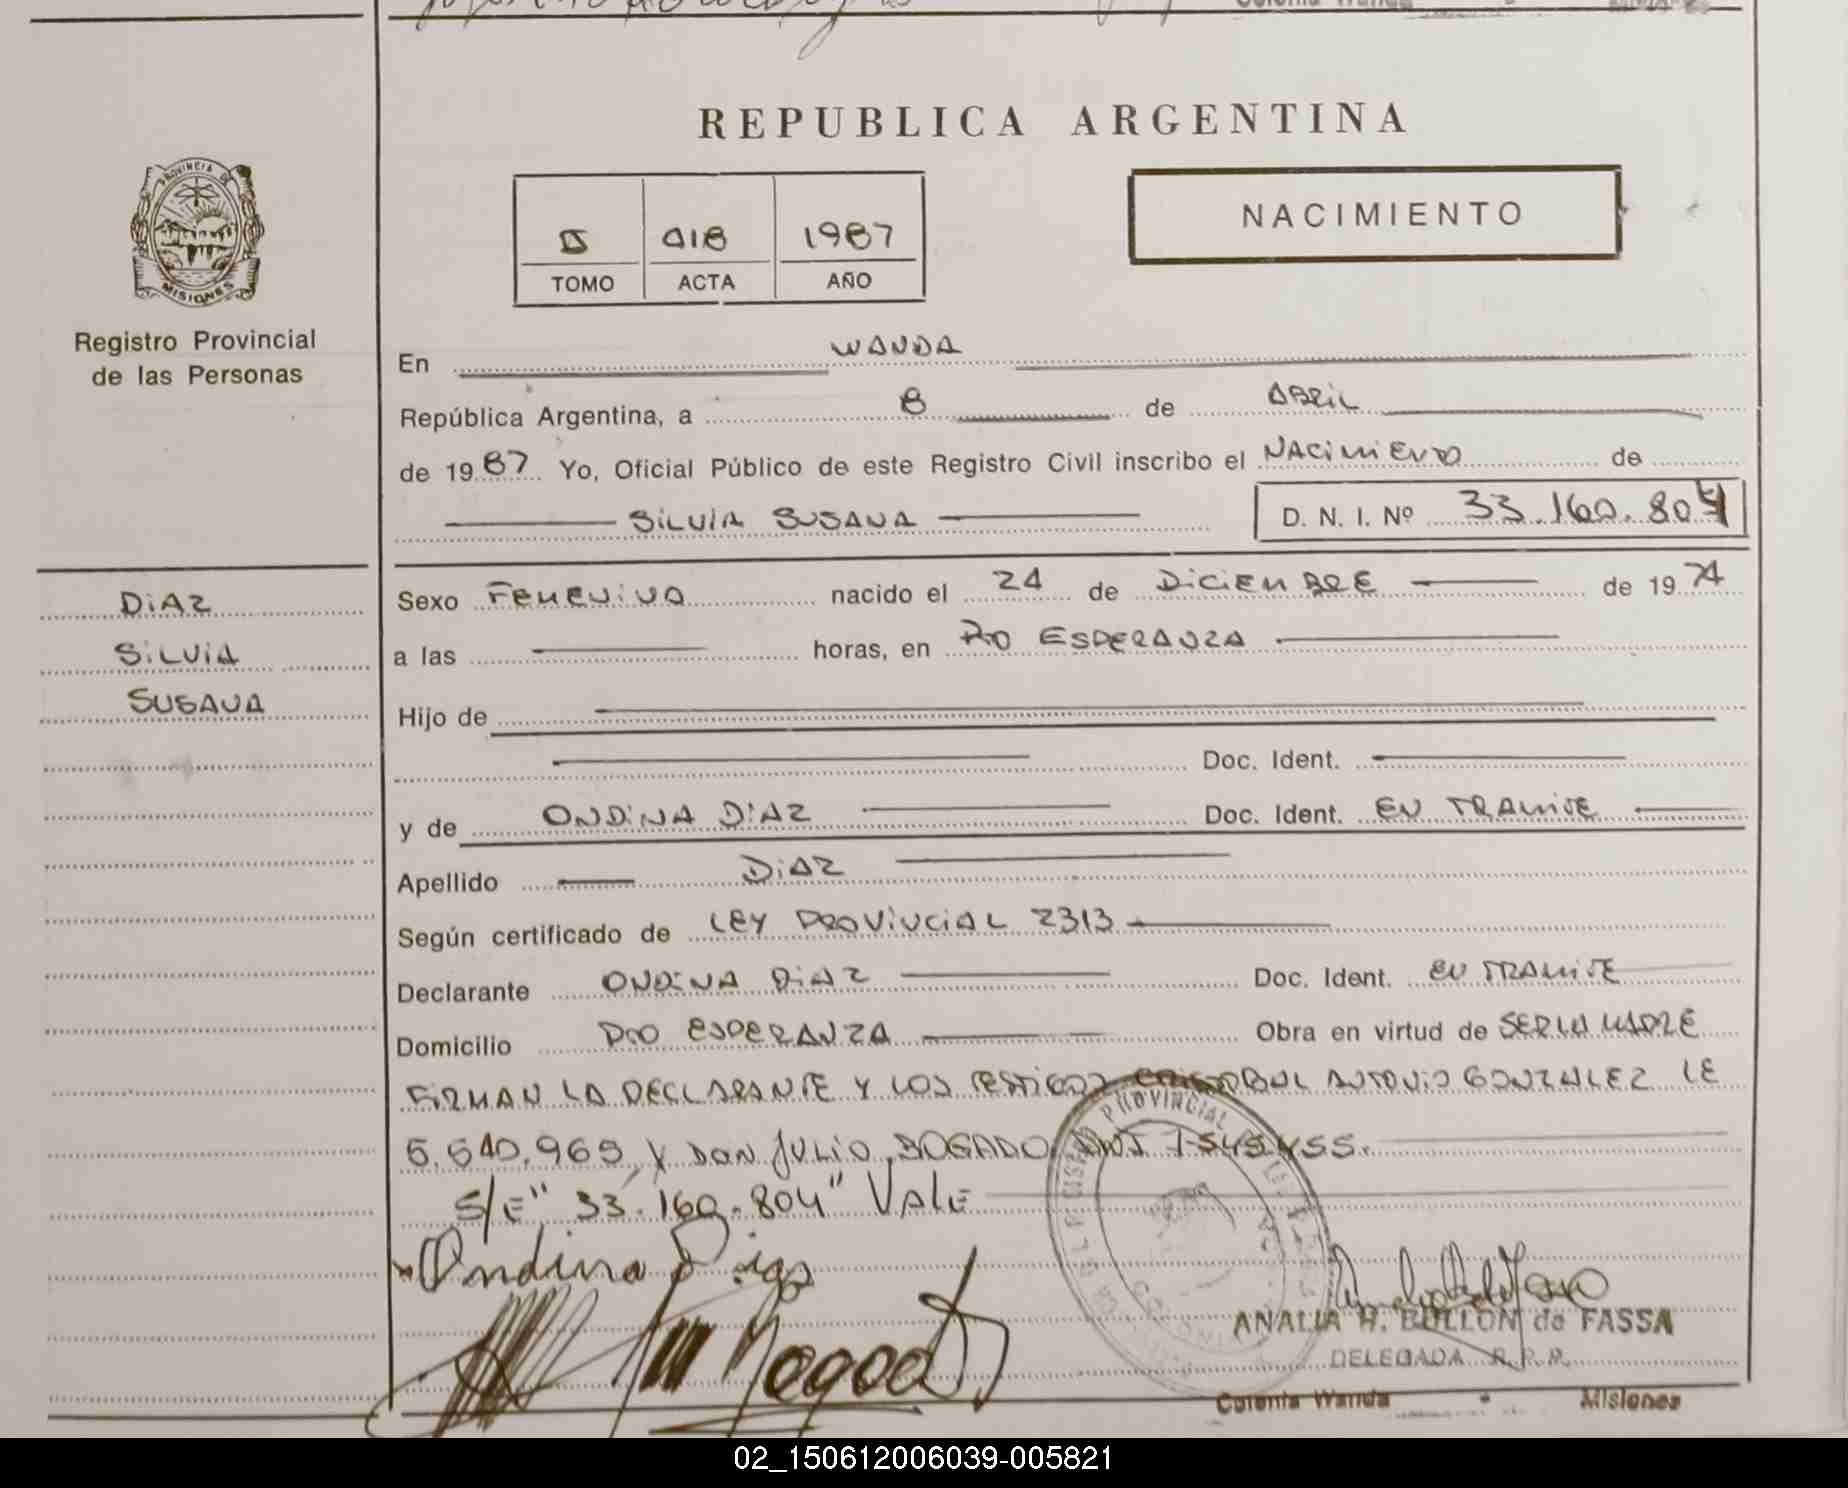 REPUBLICA ARGENTINA
PROVINCIA DE
MISIONES
Registro Provincial
de las Personas
NACIMIENTO
II 018 1987
TOMO ACTA AÑO
En WANDA
República Argentina, a 8 de ABRIL
de 1987 Yo, Oficial Público de este Registro Civil inscribo el NACIMIENTO de
SILVIA SUSANA D. N. I. Nº 33.160.804
DIAZ
SILVIA
SUSANA
Sexo FEMENINO nacido el 24 de DICIEMBRE de 1974
a las horas, en PTO ESPERANZA
Hijo de
Doc. Ident.
y de ONDINA DIAZ Doc. Ident. EN TRAMITE
Apellido DIAZ
Según certificado de LEY PROVINCIAL 2313
Declarante ONDINA DIAZ Doc. Ident. EN TRAMITE
Domicilio PTO ESPERANZA Obra en virtud de SER LA MADRE
FIRMAN LA DECLARANTE Y LOS TESTIGOS CRISTOBAL ANTONIO GONZALEZ LE
Y DON JULIO BOGADO DNI 7.545.455.
S/E "33.160.804" VALE
Ondina Diaz
ANALIA H. BULLON de FASSA
DELEGADA R.P.P.
Colonia Wanda - Misiones
02_150612006039-005821